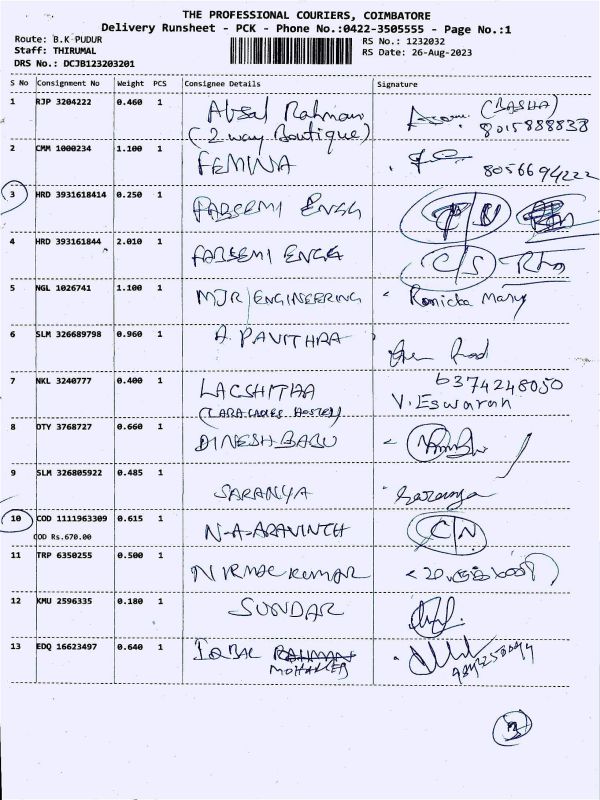 THE PROFESSIONAL COURIERS, COIMBATORE
Delivery Runsheet - PCK - Phone No.:0422-3505555 - Page No.:1
Route: B.K PUDUR
RS No.: 1232032
Staff: THIRUMAL
RS Date: 26-Aug-2023
DRS No.: DCJB123203201
S No Consignment No Weight PCS Consignee Details Signature
1 RJP 3204222 0.460 1 Absal Rahman (BASHA)
(2 way Boutique) 8015888838
2 CMM 1000234 1.100 1 FEMINA 8056694222
3 HRD 3931618414 0.250 1 FABSEMI ENGG
4 HRD 393161844 2.010 1 FABSEMI ENGG C/S
5 NGL 1026741 1.100 1 MJR ENGINEERING Ronicka Mary
6 SLM 326689798 0.960 1 A. PAVITHRA
7 NKL 3240777 0.400 1 LACSHITHA 6374248050
V. Eswaran
8 OTY 3768727 0.660 1 DINESH BABU
9 SLM 326805922 0.485 1 SARANYA Saranya
10 COD 1111963309 0.615 1 N-A-ARAVINTH C/N
COD Rs.670.00
11 TRP 6350255 0.500 1 NIRMAL KUMAR
12 KMU 2596335 0.180 1 SUNDAR
13 EDQ 16623497 0.640 1 IQBAL RAHMAN
3